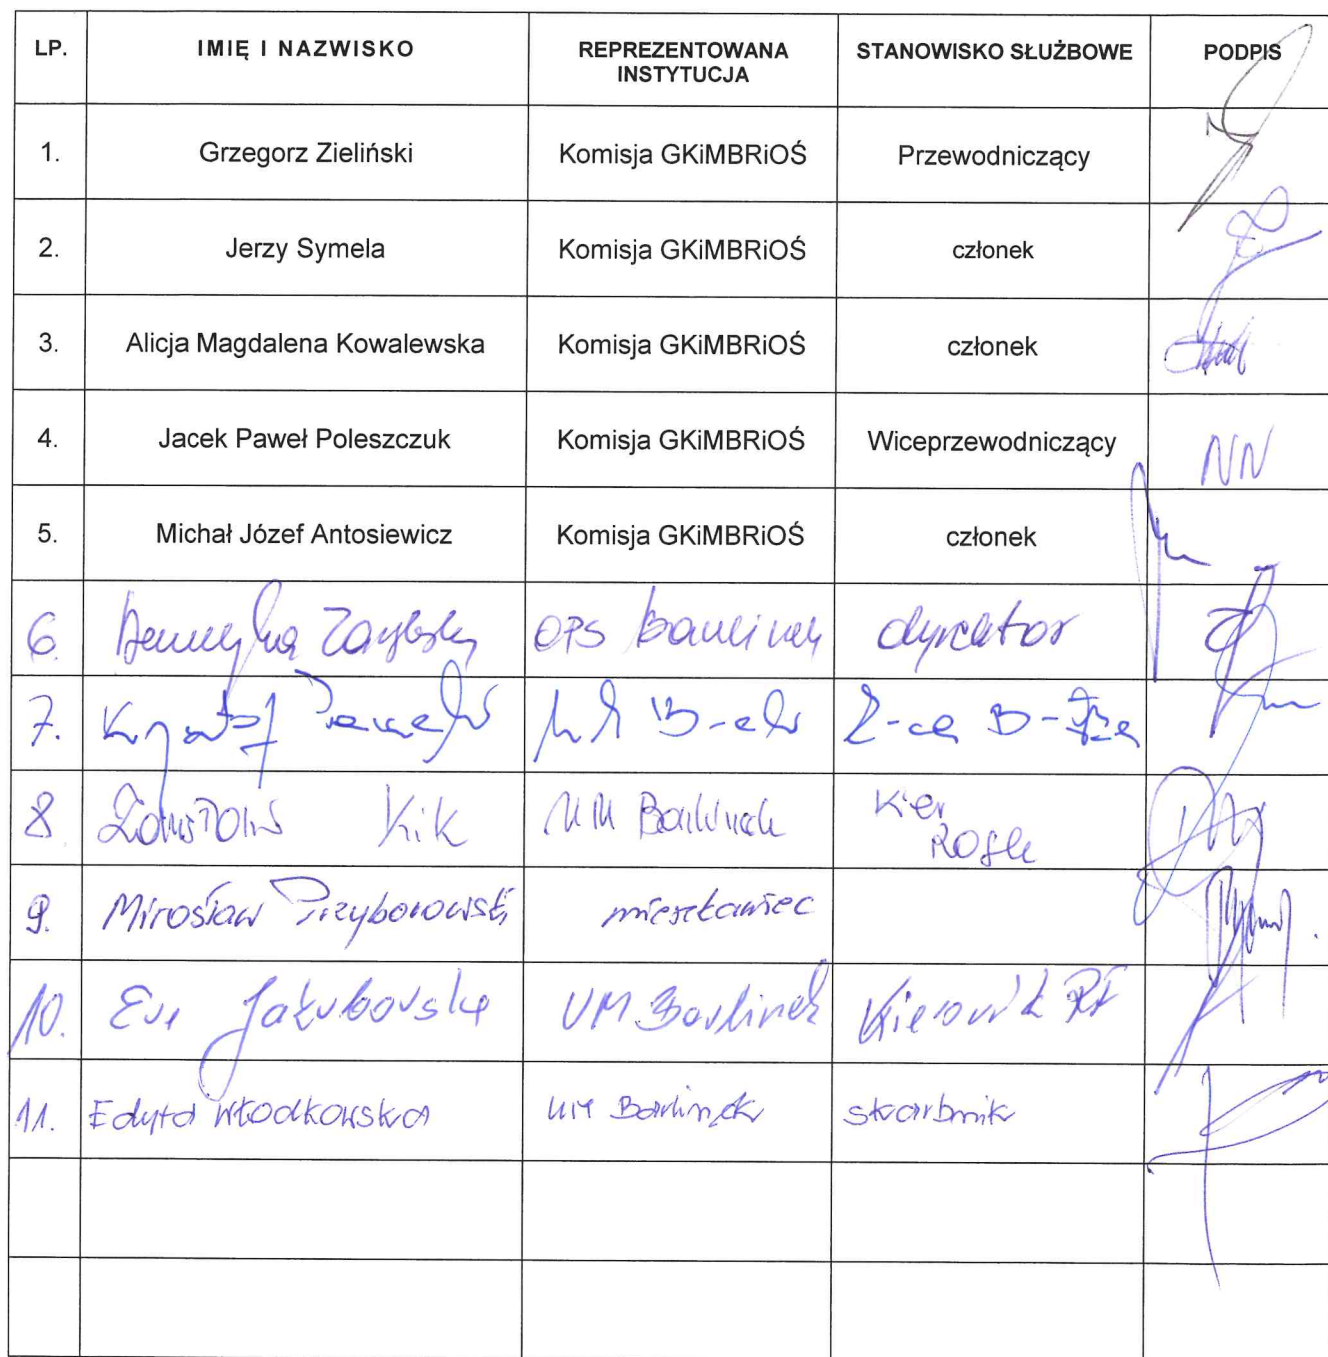 LP. IMIĘ I NAZWISKO REPREZENTOWANA INSTYTUCJA STANOWISKO SŁUŻBOWE PODPIS
1. Grzegorz Zieliński Komisja GKiMBRiOŚ Przewodniczący
2. Jerzy Symela Komisja GKiMBRiOŚ członek
3. Alicja Magdalena Kowalewska Komisja GKiMBRiOŚ członek
4. Jacek Paweł Poleszczuk Komisja GKiMBRiOŚ Wiceprzewodniczący NN
5. Michał Józef Antosiewicz Komisja GKiMBRiOŚ członek
6. OPS Barlinek dyrektor
7. Krzysztof Z-ca B-
8. Kik UM Barlinek Kier
9. Mirosław Przyborowski mieszkaniec
10. Ewa Jakubowska UM Barlinek Kierownik
11. Edyta Włodkowska UM Barlinek skarbnik